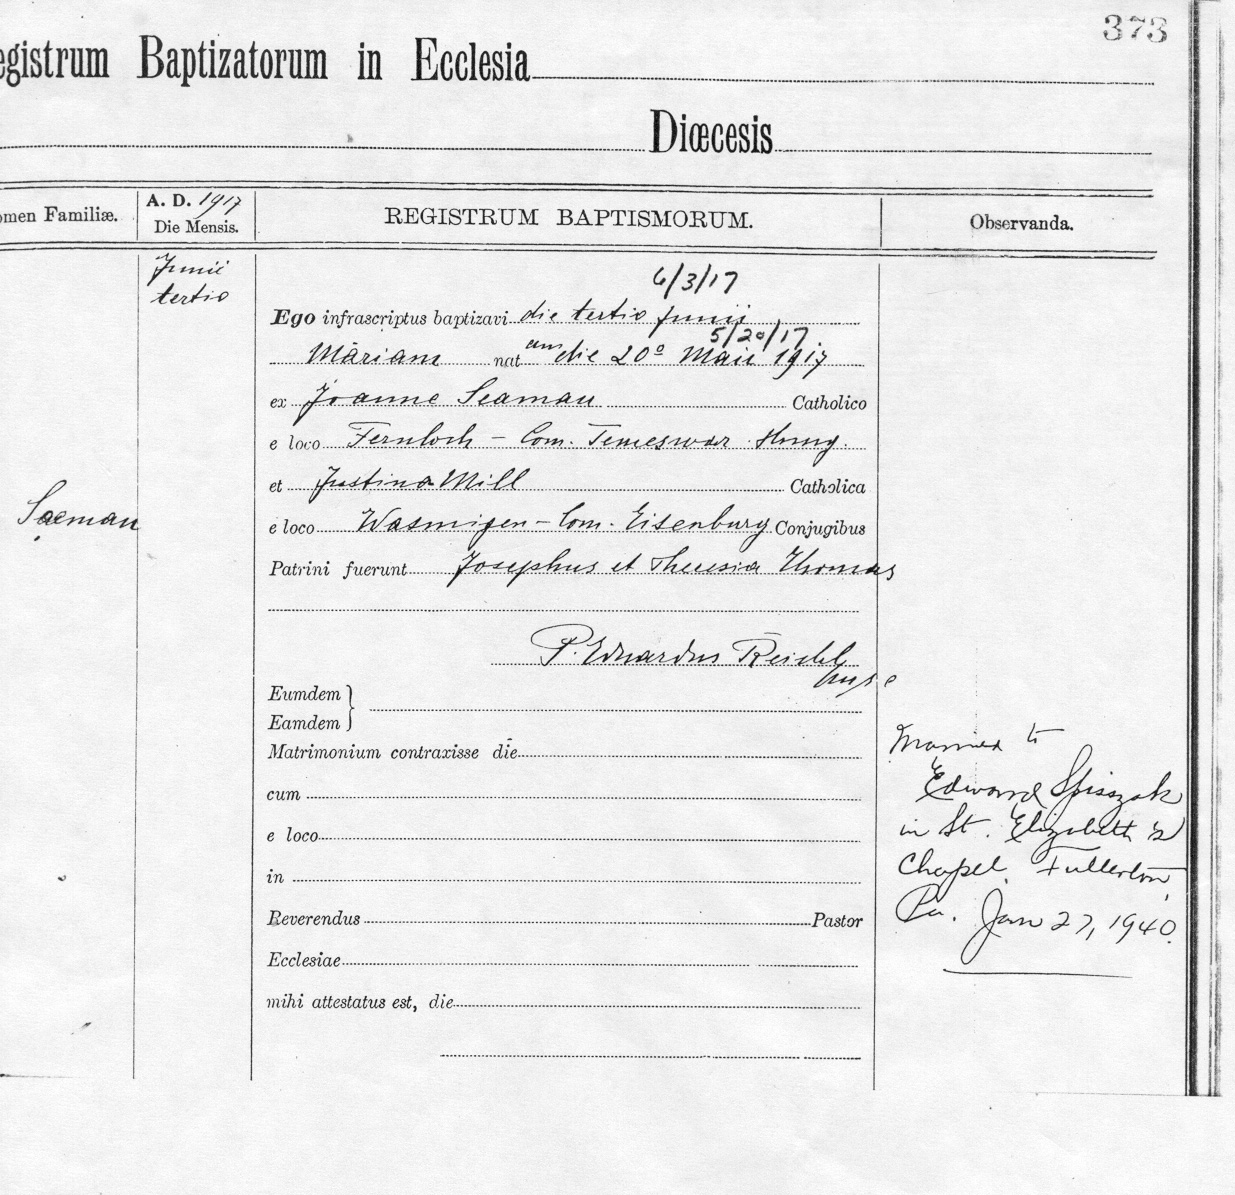 373
egistrum Baptizatorum in Ecclesia
Diœcesis
omen Familiæ.
A. D. 1917
Die Mensis.
REGISTRUM BAPTISMORUM.
Observanda.
Junii
tertio
6/3/17
Ego infrascriptus baptizavi die tertio Junii
5/20/17
Mariam nat am die 20º Maii 1917
ex Joanne Seaman Catholico
e loco Fernloch - Com. Temeswar Hung.
et Justina Mill Catholica
Saeman
e loco Wasmigen - Com. Eisenburg Conjugibus
Patrini fuerunt Josephus et Theresia Thomas
P. Eduardus Reidel
Eumdem
Eamdem
Matrimonium contraxisse die
cum
e loco
in
Reverendus Pastor
Ecclesiae
mihi attestatus est, die
Married to
Edward Spisszak
in St. Elizabeth's
Chapel, Fullerton,
Pa. Jan 27, 1940.